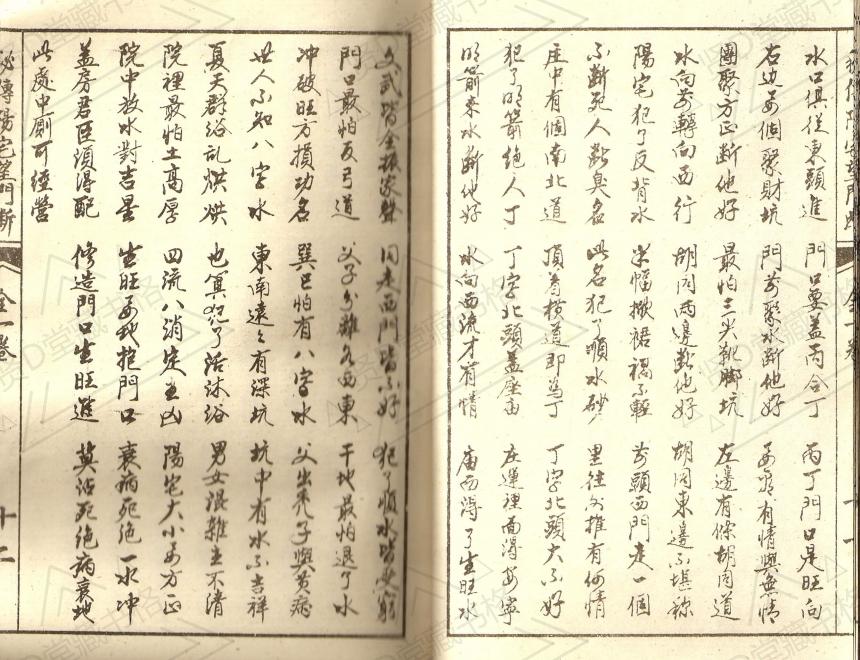 水口俱從東頭進 門口要蓋丙合丁 丙丁門口是旺向
右边要個聚財坑 門前聚水断他好 要氣有情與無情
團聚方正断他好 最怕三尖靴脚坑 左邊有條胡同道
水向前轉向西行 胡同两邊断他好 胡同東邊不堪称
陽宅犯了反背水 裙不輕 前頭西門走一個
不断死人敗臭名 此名犯了順水砂 里往外推有何情
庄中有個南北道 頂着横道即爲丁 丁字北頭大不好
犯了明箭絶人丁 丁字北頭蓋座庙 庄運裡面得安寧
明箭来水断他好 水向西流才有情 庙西得了生旺水
文武皆全振家聲 同走西門皆不好 犯了順水皆受窮
門口最怕反弓道 父子分離各西東 干地最怕退了水
冲破旺方損功名 巽巳怕有八字水 父出秃子與黄病
世人不知八字水 東南遠々有深坑 坑中有水不吉祥
夏天群浴乱烘烘 也算犯了活沐浴 男女混雜主不清
院裡最怕土高厚 四流八消定主凶 陽宅大小要方正
院中放水對吉星 生旺要我抱門口 衰病死絶一水冲
蓋房君臣須得配 修造門口生旺進 莫沾死絶病衰地
此處中厠可經營
秘傳陽宅筐門斷 全一卷 十二